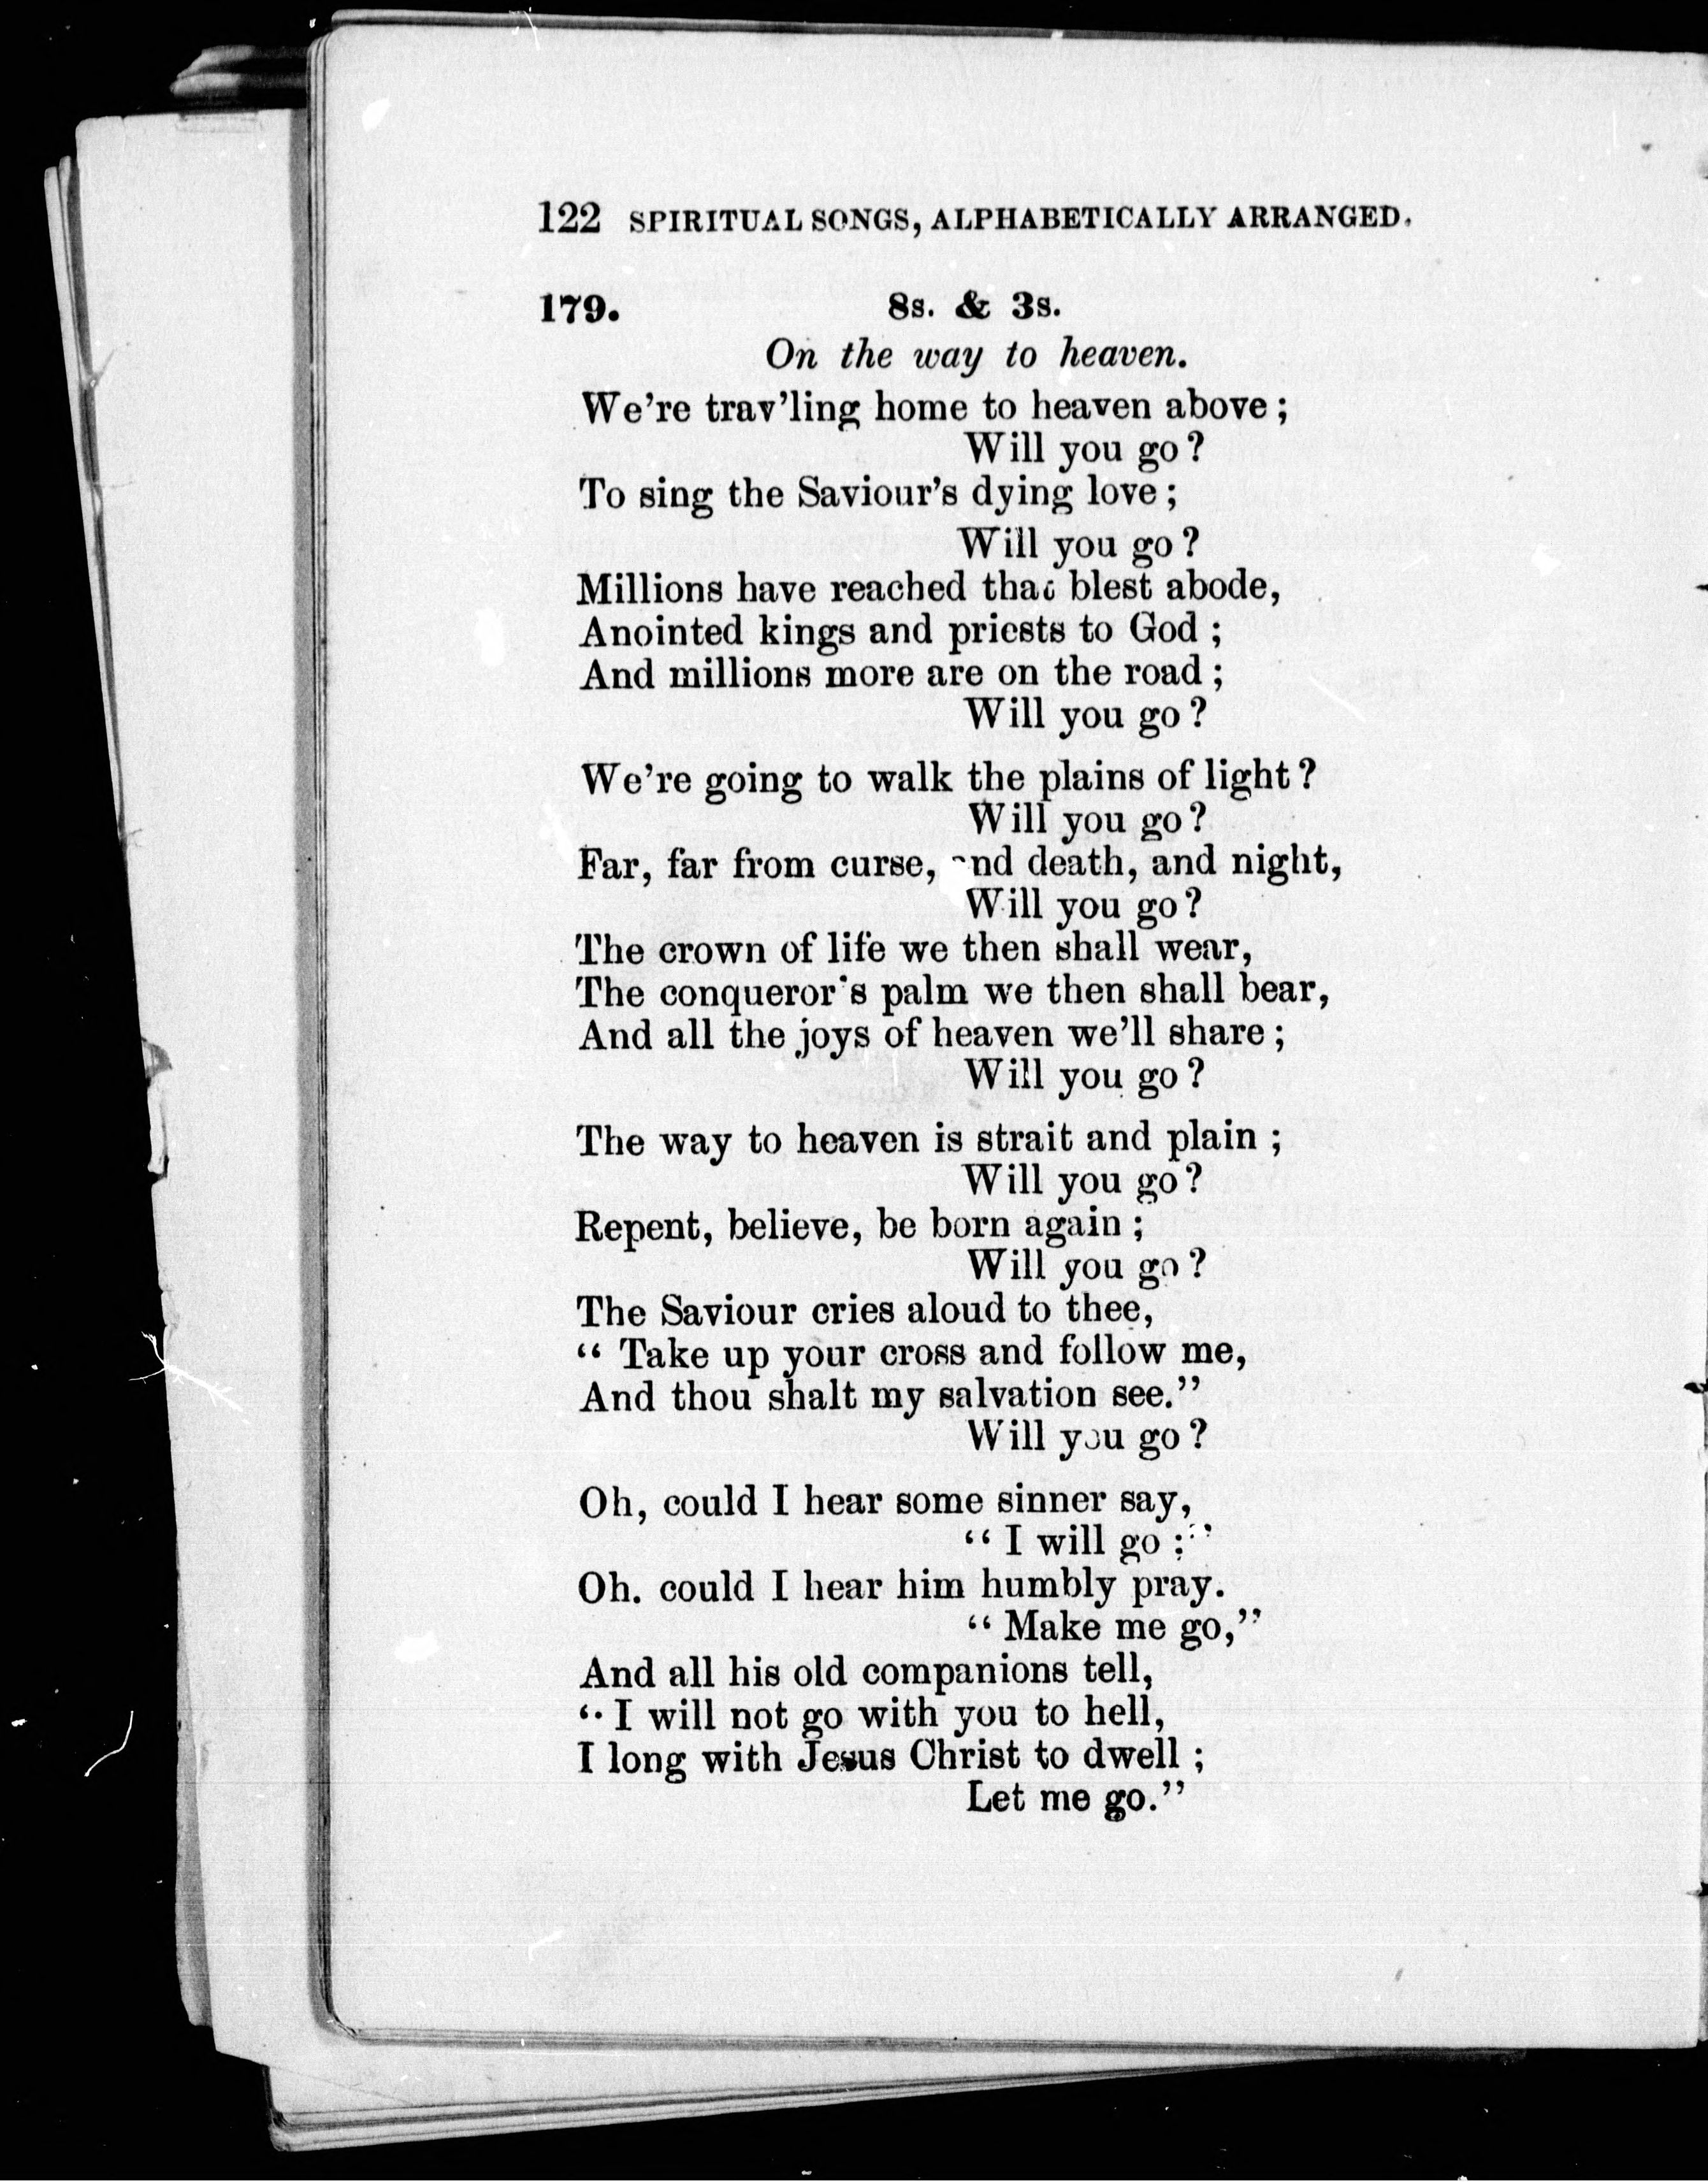 122 SPIRITUAL SONGS, ALPHABETICALLY ARRANGED.
179. 8s. & 3s.
On the way to heaven.
We're trav'ling home to heaven above;
Will you go?
To sing the Saviour's dying love;
Will you go?
Millions have reached that blest abode,
Anointed kings and priests to God;
And millions more are on the road;
Will you go?
We're going to walk the plains of light?
Will you go?
Far, far from curse, and death, and night,
Will you go?
The crown of life we then shall wear,
The conqueror's palm we then shall bear,
And all the joys of heaven we'll share;
Will you go?
The way to heaven is strait and plain;
Will you go?
Repent, believe, be born again;
Will you go?
The Saviour cries aloud to thee,
"Take up your cross and follow me,
And thou shalt my salvation see."
Will you go?
Oh, could I hear some sinner say,
"I will go;"
Oh. could I hear him humbly pray.
"Make me go,"
And all his old companions tell,
"I will not go with you to hell,
I long with Jesus Christ to dwell;
Let me go."